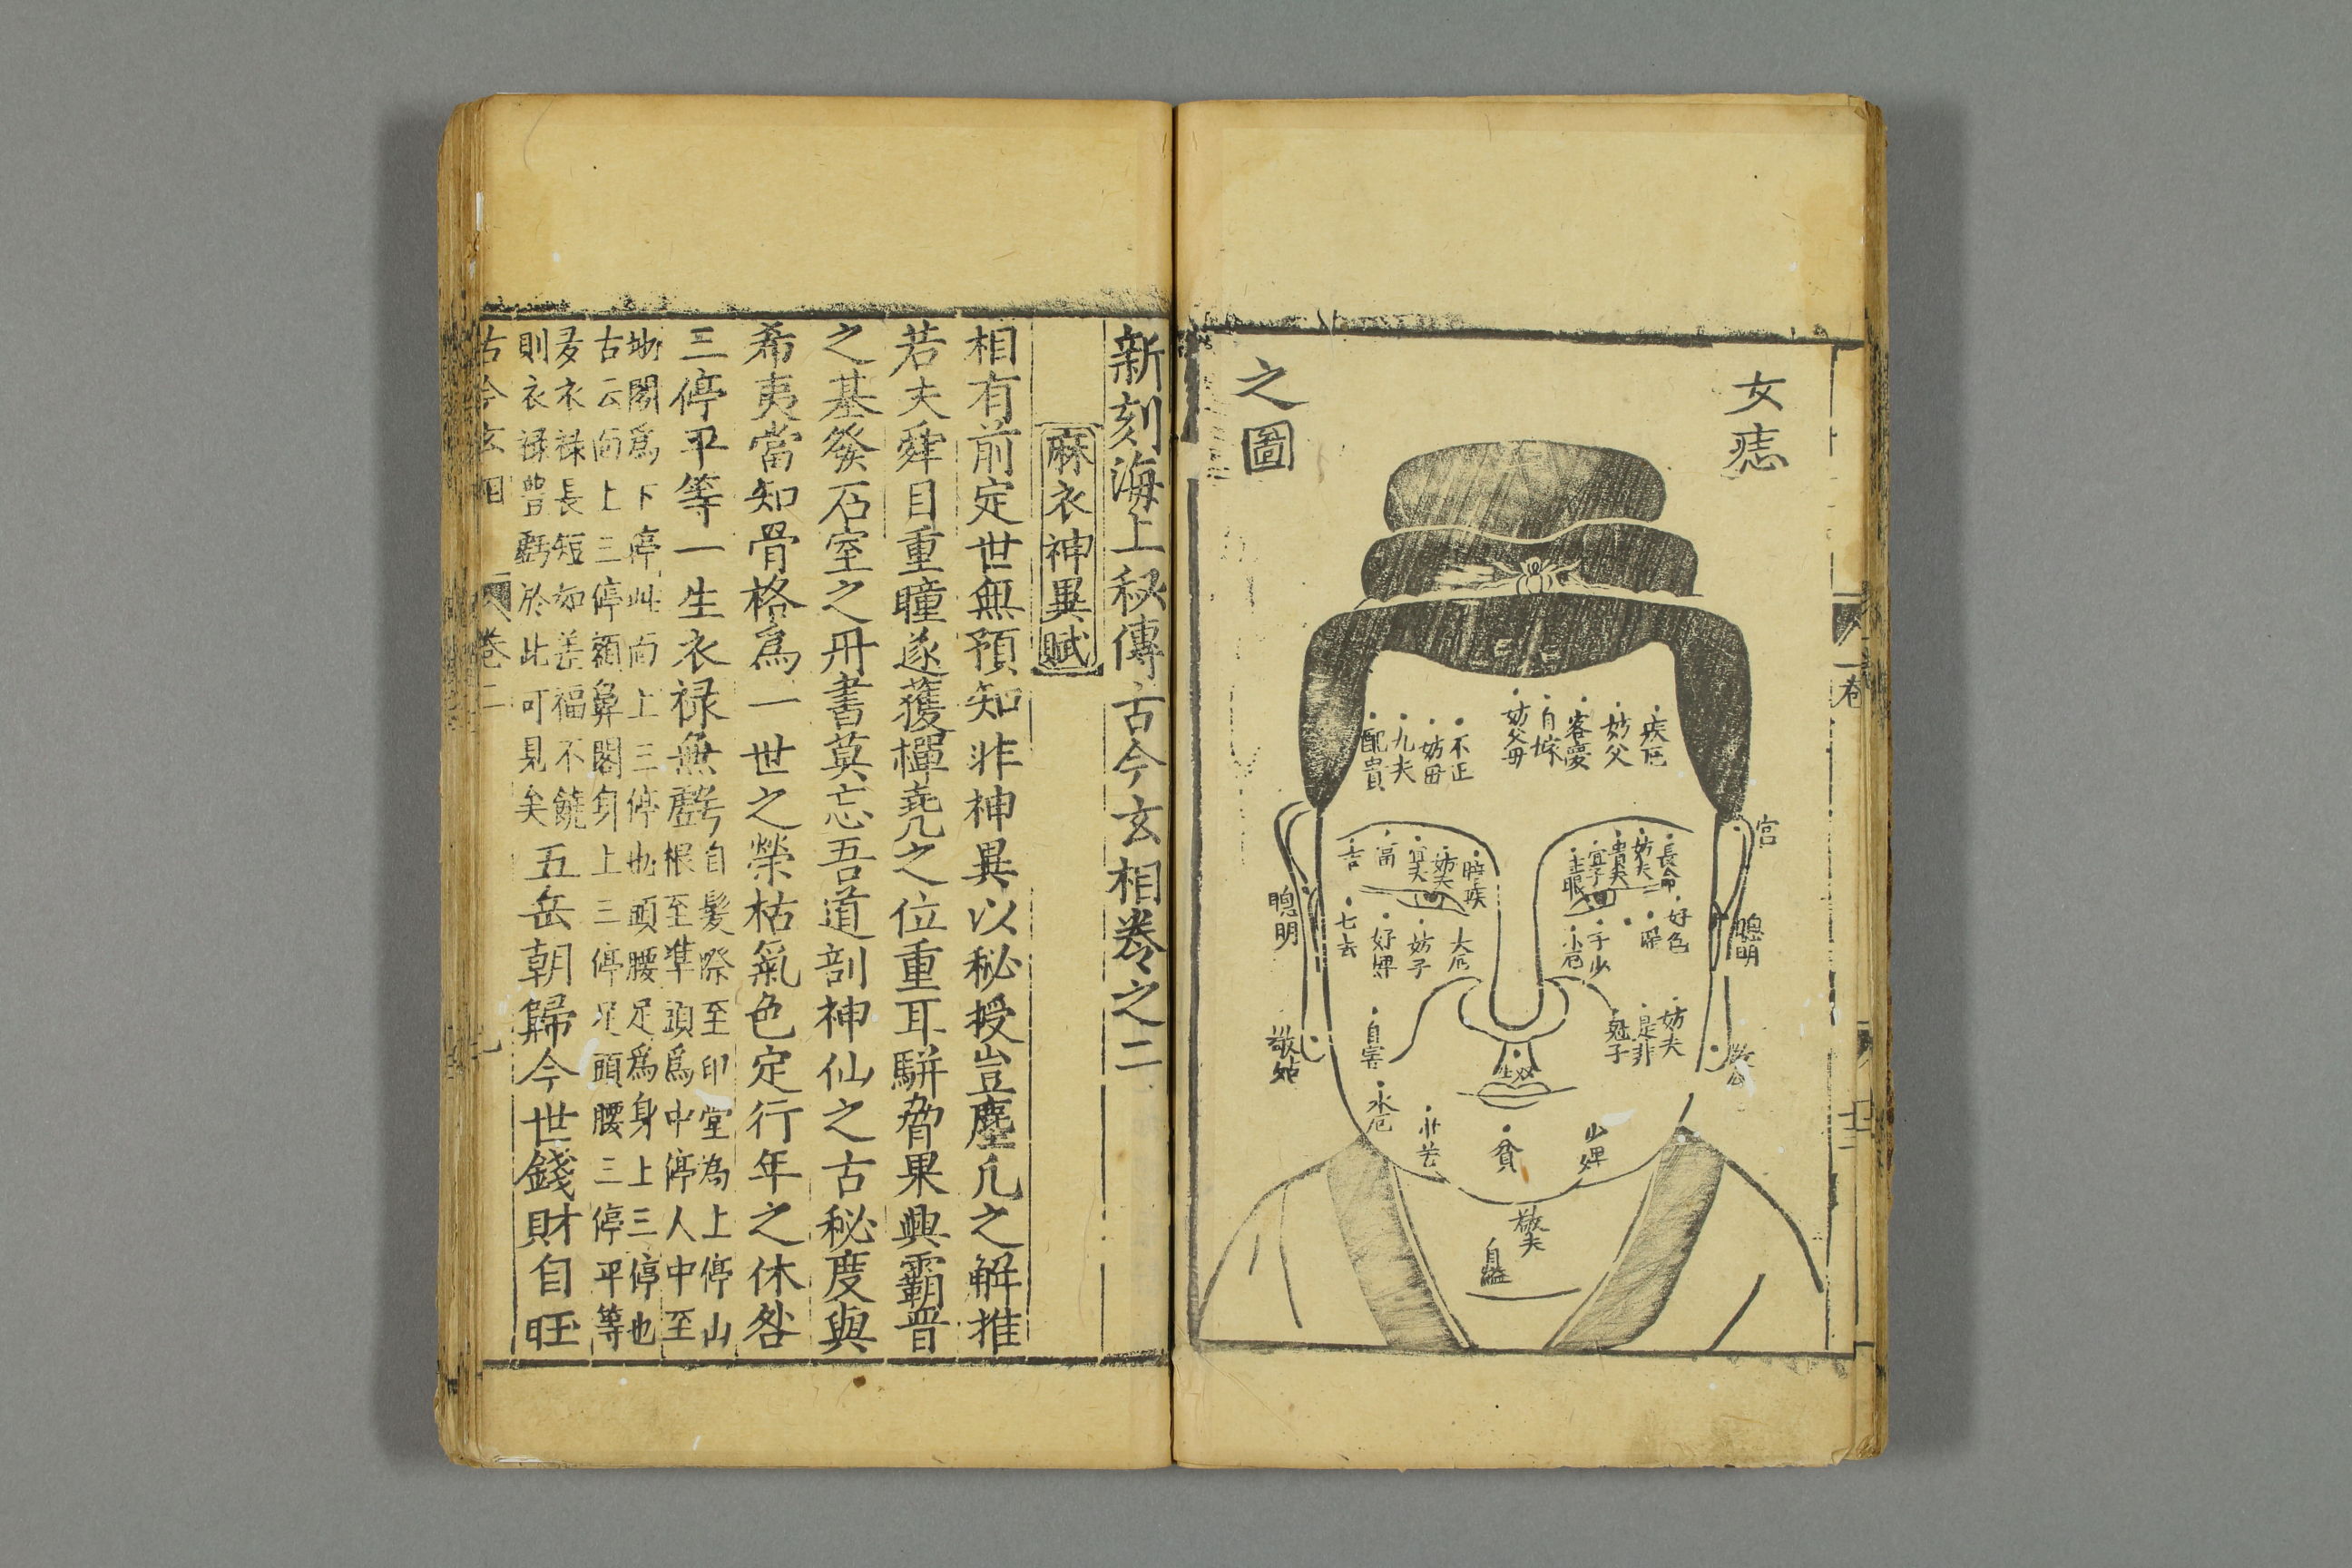 女痣
之圖
疾厄
妨父
客憂
自嫁
妨父母
不正
妨母
九夫
配貴
宮
長命
妨夫
貴夫
宜子
時疾
妨夫
宜夫
富
吉
好色
子少
小厄
大厄
妨子
好婢
七去
聰明
聰明
妨夫
是非
剋子
自害
敬姑
水厄
貧
少婢
敬夫
自縊
一卷
新刻海上秘傳古今玄相卷之二
麻衣神異賦
相有前定世無預知非神異以秘授豈塵凡之解推
若夫舜目重瞳遂獲禪堯之位重耳駢脅果興霸晉
之基發石室之丹書莫忘吾道剖神仙之古秘度與
希夷當知骨格爲一世之榮枯氣色定行年之休咎
三停平等一生衣禄無虧
自髪際至印堂為上停山
根至準頭爲中停人中至
地閣爲下停此面上三停也頭腰足爲身上三停也
古云面上三停額鼻閣身上三停足頭腰三停平等
多衣禄長短如差福不饒
則衣禄豊虧於此可見矣
五岳朝歸今世錢財自旺
古今玄相
卷二